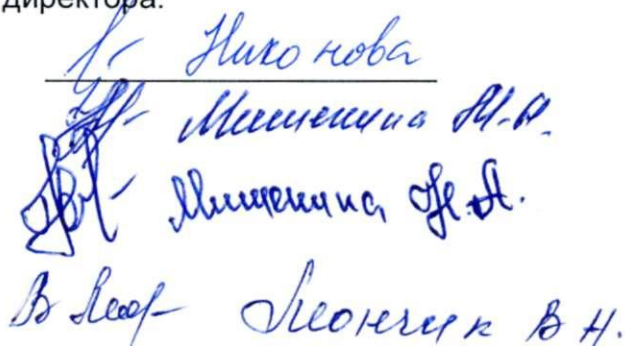 директора.
Никонова
Мишенина М.А.
Мишенина Н.А.
Лончик В Н.